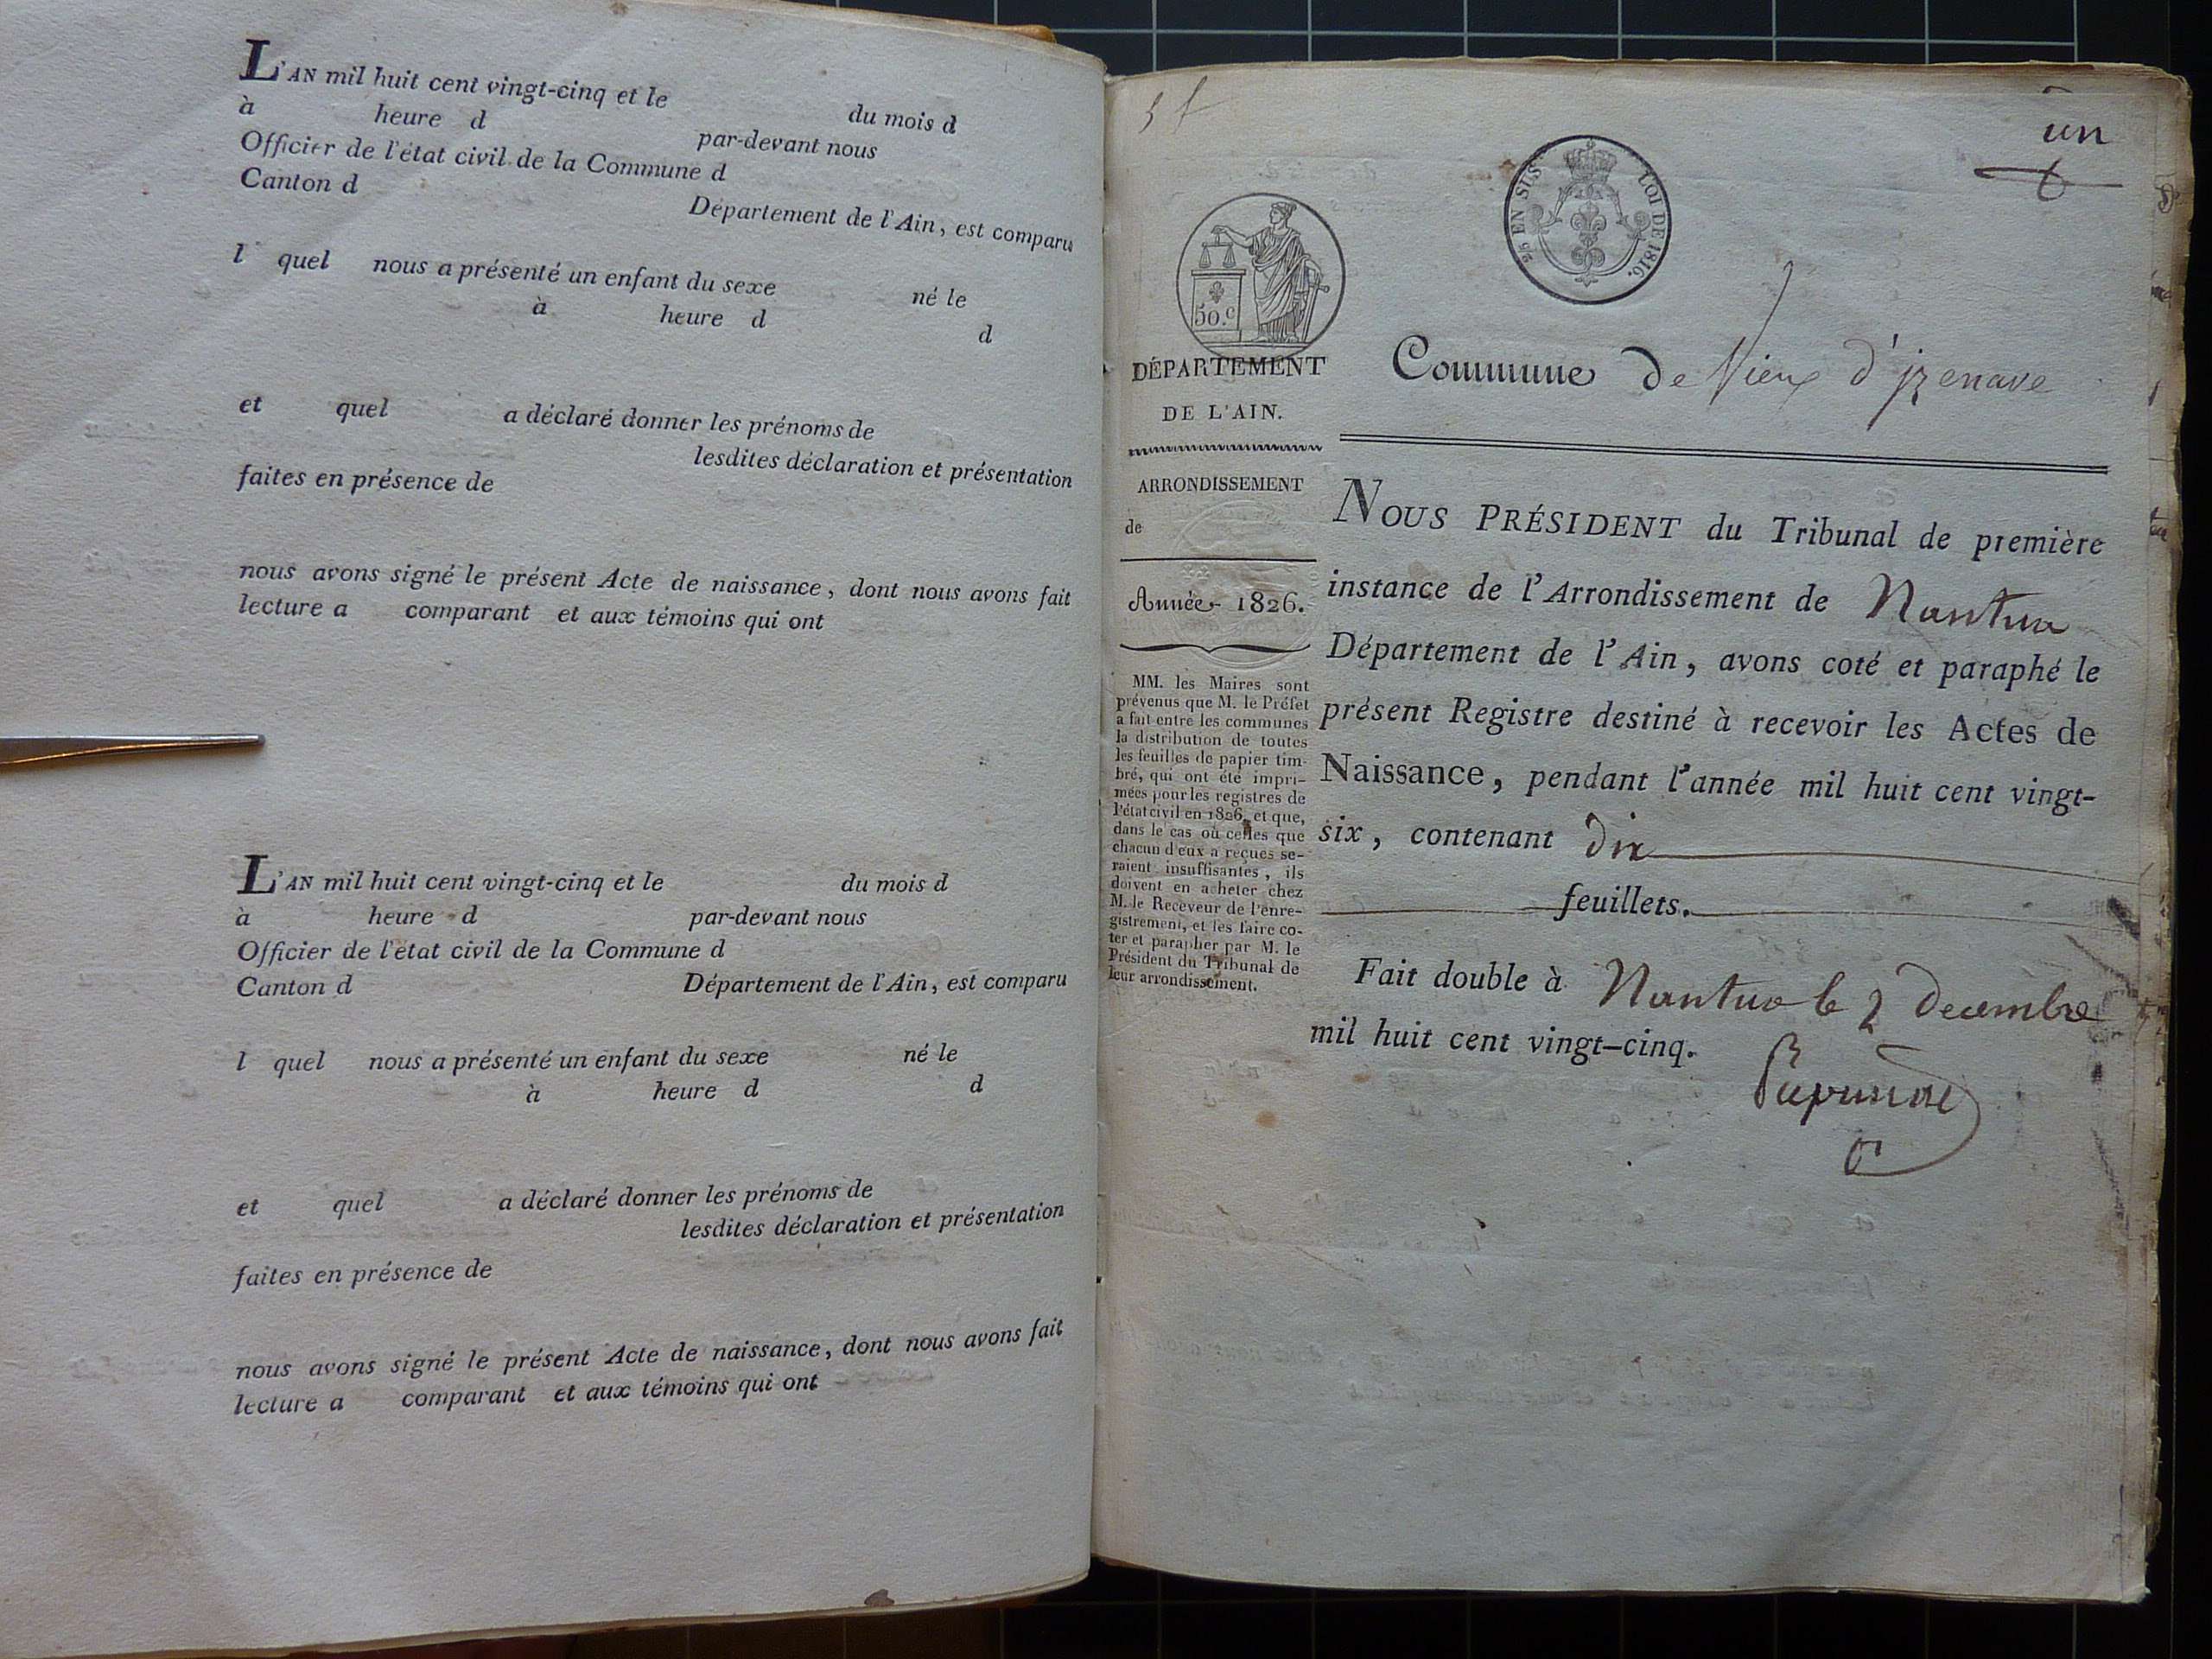 L'AN mil huit cent vingt-cinq et le du mois d
à heure d par-devant nous
Officier de l'état civil de la Commune d
Canton d Département de l'Ain, est comparu
l quel nous a présenté un enfant du sexe né le
à heure d d
et quel a déclaré donner les prénoms de
lesdites déclaration et présentation
faites en présence de
nous avons signé le présent Acte de naissance, dont nous avons fait
lecture a comparant et aux témoins qui ont
L'AN mil huit cent vingt-cinq et le du mois d
à heure d par-devant nous
Officier de l'état civil de la Commune d
Canton d Département de l'Ain, est comparu
l quel nous a présenté un enfant du sexe né le
à heure d d
et quel a déclaré donner les prénoms de
lesdites déclaration et présentation
faites en présence de
nous avons signé le présent Acte de naissance, dont nous avons fait
lecture a comparant et aux témoins qui ont
un
EN SUS
LOI DE 1816.
50.c
DÉPARTEMENT
DE L'AIN.
ARRONDISSEMENT
de
Année 1826.
MM. les Maires sont
prévenus que M. le Préfet
a fait entre les communes
la distribution de toutes
les feuilles de papier tim-
bré, qui ont été impri-
mées pour les registres de
l'état civil en 1826, et que,
dans le cas où celles que
chacun d'eux a reçues se-
raient insuffisantes, ils
doivent en acheter chez
M. le Receveur de l'enre-
gistrement, et les faire co-
ter et parapher par M. le
Président du Tribunal de
leur arrondissement.
Commune de Vieux d'izenave
NOUS PRÉSIDENT du Tribunal de première
instance de l'Arrondissement de Nantua
Département de l'Ain, avons coté et paraphé le
présent Registre destiné à recevoir les Actes de
Naissance, pendant l'année mil huit cent vingt-
six, contenant dix
feuillets.
Fait double à Nantua le 2 decembre
mil huit cent vingt-cinq.